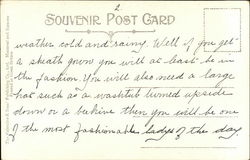 2
SOUVENIR POST CARD
weather cold and rainy. Well if you get
a sheath gown you will at least be in
the fashion. You will also need a large
hat such as a washtub turned upside
down or a then you will be one
of the most fashionable ladys of the day